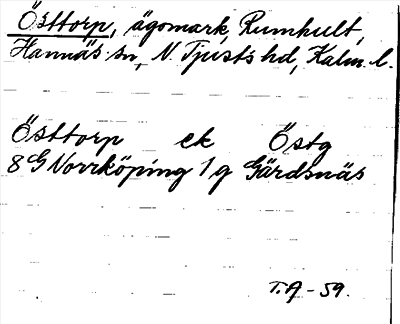 Östtorp, ägomark, Rumhult,
Hannäs sn, N. Tjusts hd, Kalm. l.
Östtorp ek Östg
8 G Norrköping 1 g Gärdsnäs
T.A - 59.